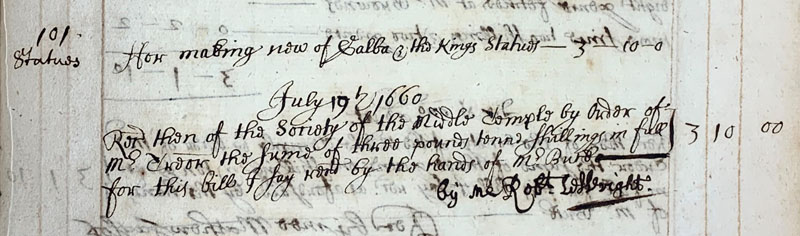 101
Statues
For making new of Galba & the Kings Statues — 3 10 0
July 19th 1660
Recd then of the Society of the Middle Temple by order of
Mr Treor the sume of three pounds tenn shillings in full
for this bill I say recd by the hands of Mr Burke
3 10 00
by me Robt